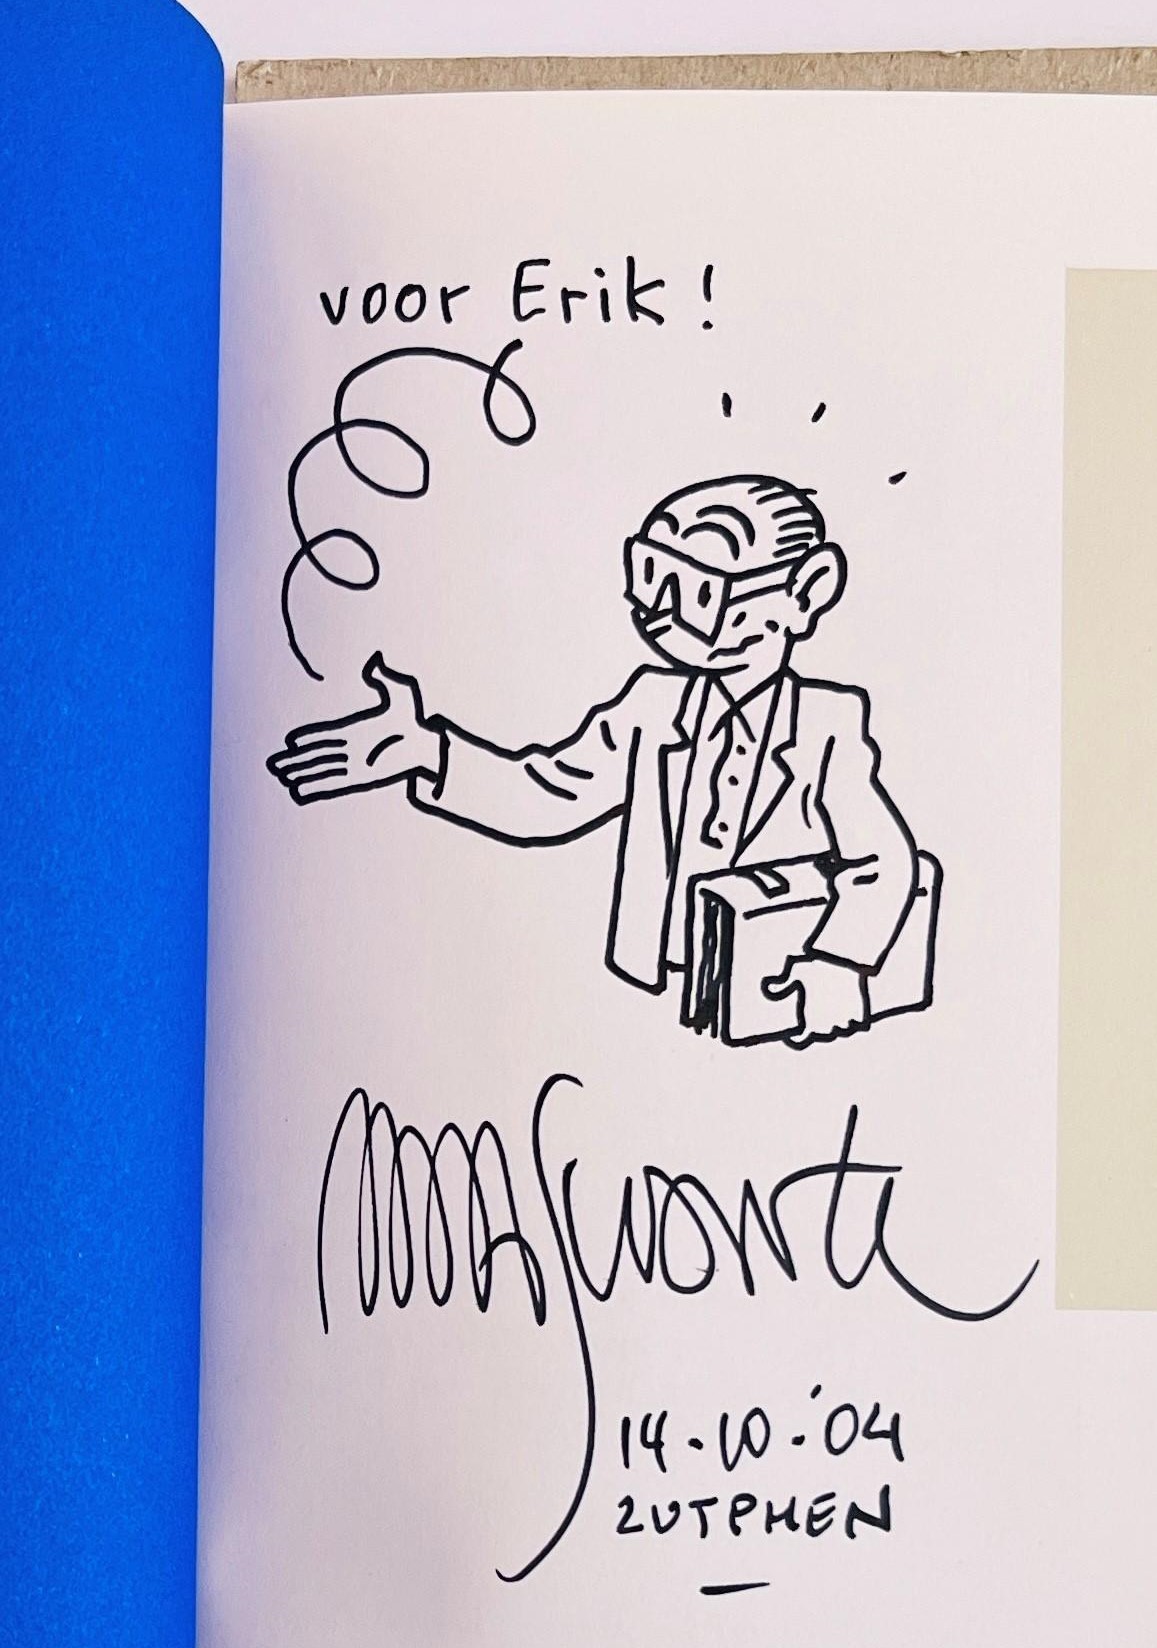 voor Erik!
Swarte
14.10.'04
ZUTPHEN